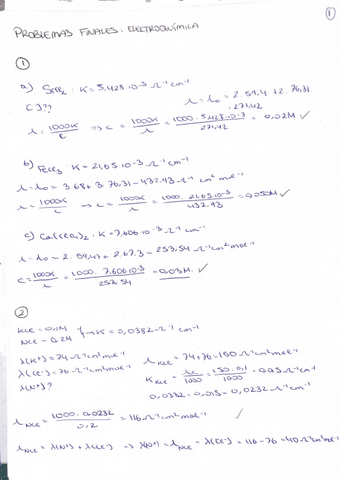 1
PROBLEMAS FINALES: ELECTROQUÍMICA
①
a) SrCl₂ : K = 5,428·10⁻³ Ω⁻¹cm⁻¹
[ ]??
Λ = Λ₀ = 2·59,4 + 2·76,31
= 271,42
Λ = 1000K/c ⇒ c = 1000K/Λ = 1000·5,428·10⁻³/271,42 = 0,02M ✓
b) FeCl₃ K = 21,65·10⁻³ Ω⁻¹cm⁻¹
Λ = Λ₀ = 3·68 + 3·76,31 = 432,93 Ω⁻¹ cm² mol⁻¹
Λ = 1000K/c ⇒ c = 1000K/Λ = 1000·21,65·10⁻³/432,93 = 0,050M ✓
K = 7,606·10⁻³ Ω⁻¹cm⁻¹
Λ = Λ₀ = 2·59,47 + 2·67,3 = 253,54 Ω⁻¹cm²mol⁻¹
c = 1000K/Λ = 1000·7,606·10⁻³/253,54 = 0,03M ✓
②
KCl = 0,1M
NCl = 0,2M
K = 0,0382 Ω⁻¹cm⁻¹
λ(K⁺) = 74 Ω⁻¹cm²mol⁻¹
λ(Cl⁻) = 76 Ω⁻¹cm²mol⁻¹
λ(N⁺)?
Λ KCl = 74 + 76 = 150 Ω⁻¹cm²mol⁻¹
K KCl = Λc/1000 = 150·0,1/1000 = 0,015 Ω⁻¹cm⁻¹
0,0382 - 0,015 = 0,0232 Ω⁻¹cm⁻¹
Λ NCl = 1000·0,0232/0,2 = 116 Ω⁻¹cm²mol⁻¹ ✓
Λ NCl = λ(N⁺) + λ(Cl⁻) ⇒ λ(N⁺) = Λ NCl - λ(Cl⁻) = 116 - 76 = 40 Ω⁻¹cm²mol⁻¹